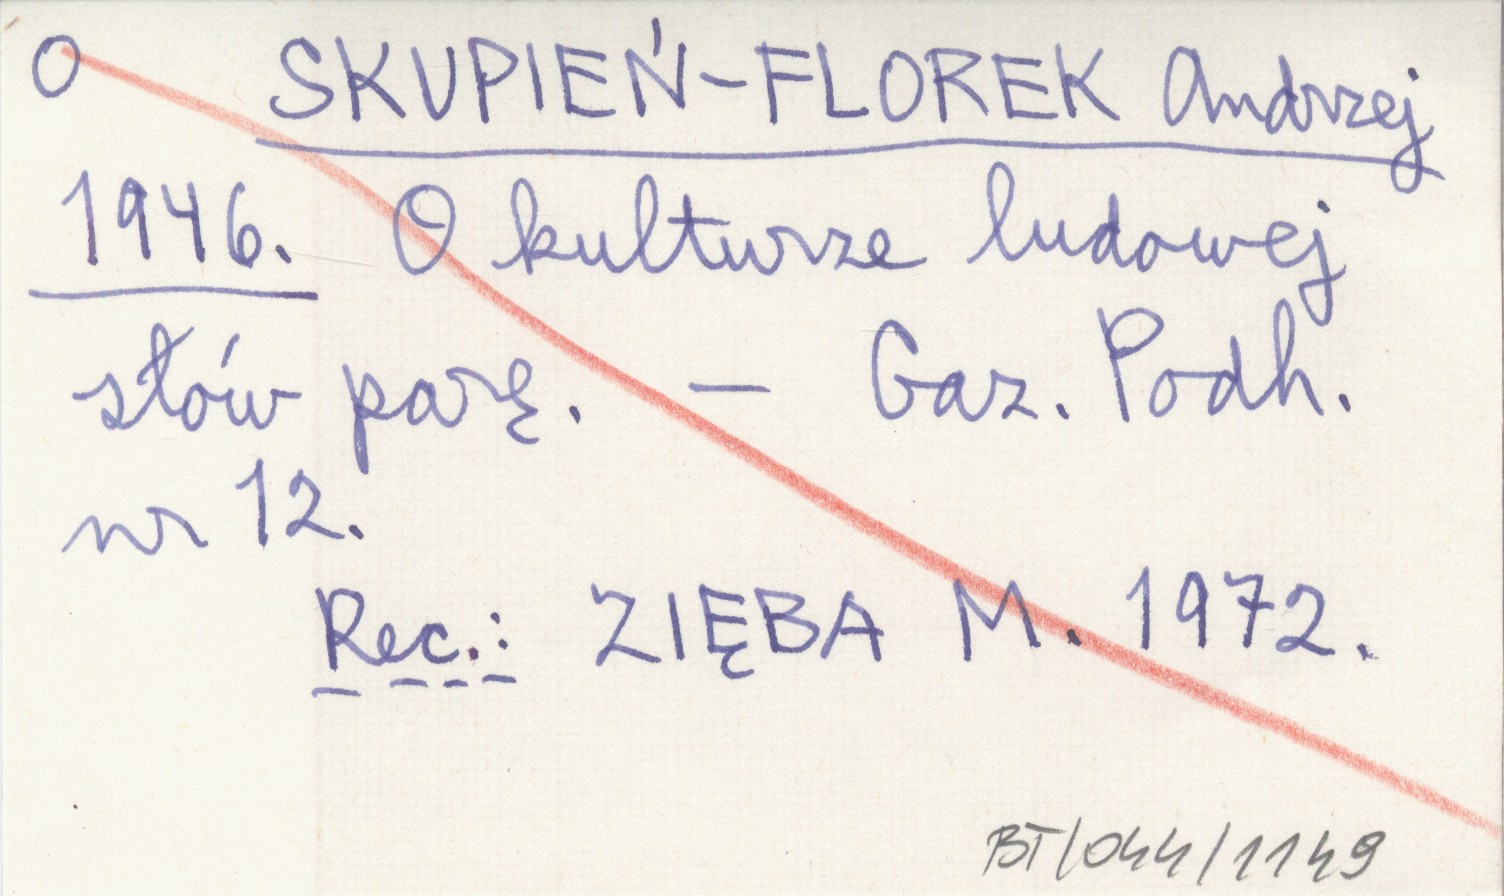 O SKUPIEŃ-FLOREK Andrzej
1946. O kulturze ludowej
słów parę. – Gaz. Podh.
nr 12.
Rec.: ZIĘBA M. 1972.
BT/044/1149